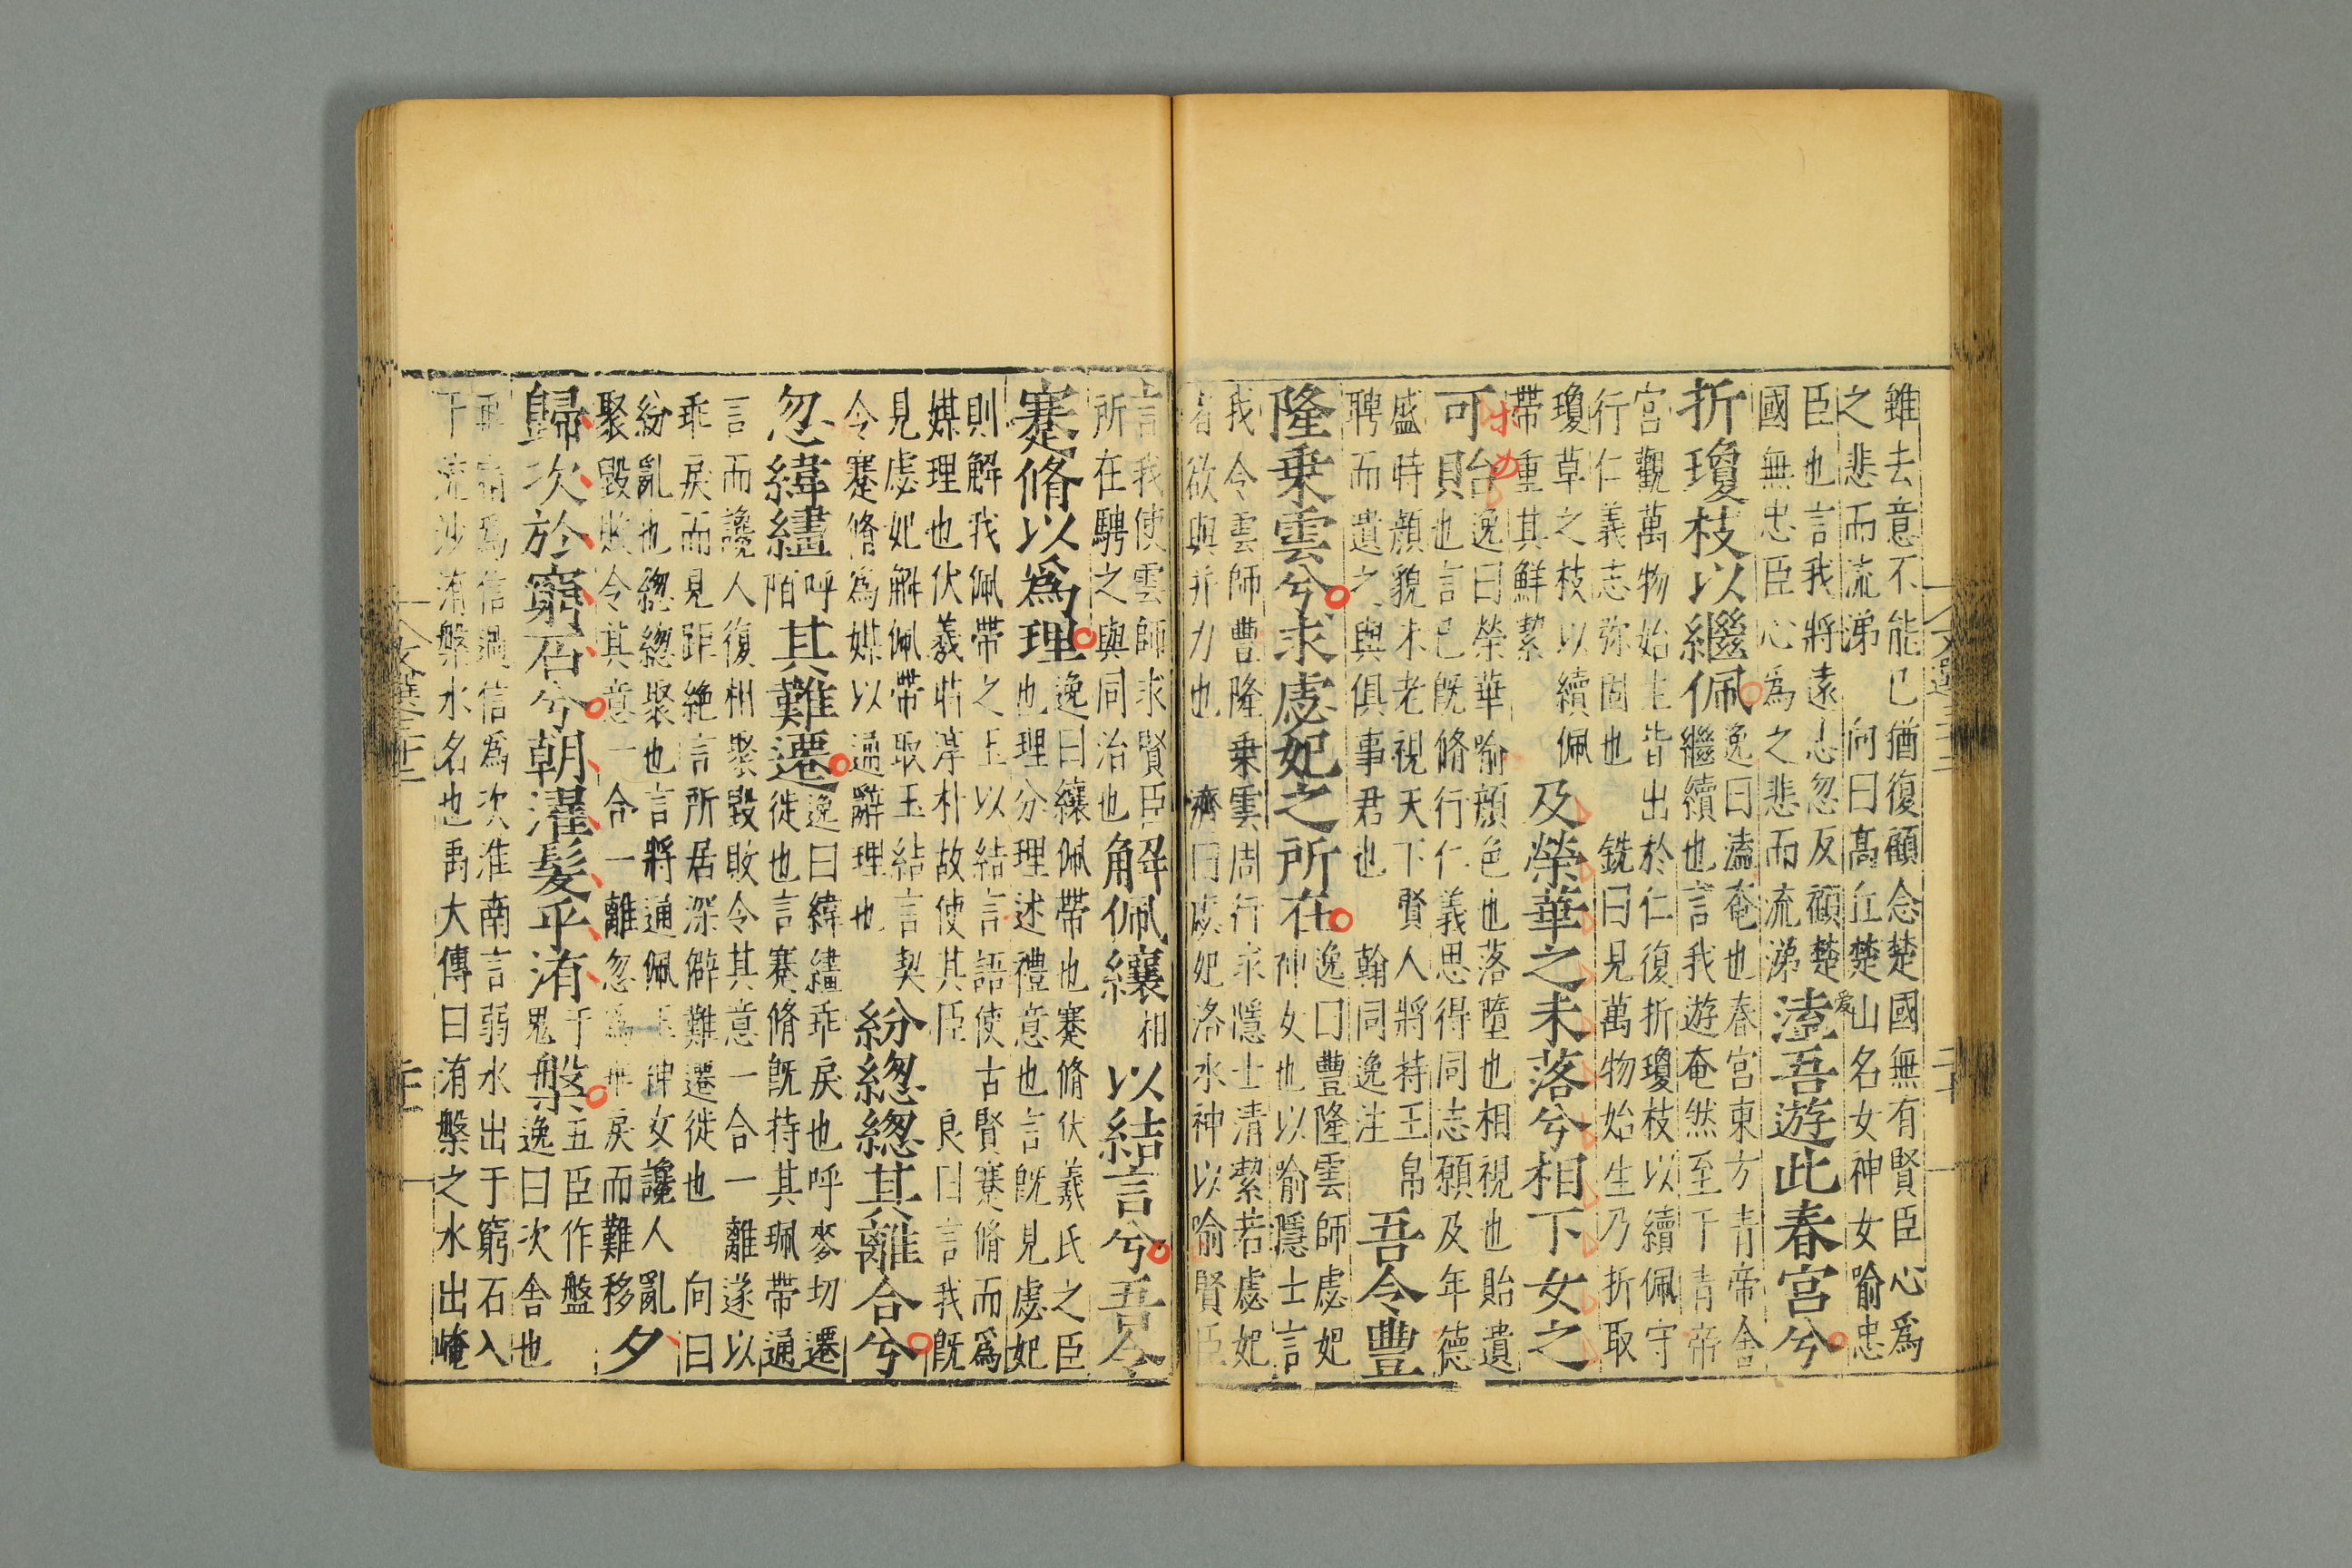 雖去意不能已猶復顧念楚國無有賢臣心爲
之悲而流涕 向曰高丘楚山名女神女喻忠
臣也言我將遠去忽反顧楚
國無忠臣心爲之悲而流涕
溘吾遊此春宮兮
折瓊枝以繼佩
逸曰溘奄也春宮東方青帝舍
繼續也言我遊奄然至于青帝
宮觀萬物始生皆出於仁復折瓊枝以續佩守
行仁義志弥固也 銑曰見萬物始生乃折取
瓊草之枝以續佩
帶重其鮮絜
及榮華之未落兮相下女之
可貽
逸曰榮華喻顏色也落墮也相視也貽遺
也言己既脩行仁義思得同志願及年德
盛時顏貌未老視天下賢人將持玉帛
聘而遺之與俱事君也 翰同逸注
吾令豐
隆乗雲兮求虙妃之所在
逸曰豐隆雲師虙妃
神女也以喻隱士言
我令雲師豊隆乗雲周行求隱士清絜若虙妃
者欲與并力也 濟曰虙妃洛水神以喻賢臣
言我使雲師求賢臣
所在騁之與同治也
解佩纕
相
以結言兮吾令
蹇脩以爲理
逸曰纕佩帶也蹇脩伏羲氏之臣
也理分理述禮意也言既見虙妃
則解我佩帶之玉以結言語使古賢蹇脩而爲
媒理也伏羲時淳朴故使其臣 良曰言我既
見虙妃解佩帶取玉結言契
令蹇脩爲媒以通辭理也
紛緫緫其離合兮
忽緯繣
呼陌
其難遷
逸曰緯繣乖戾也呼麥切遷
徙也言蹇脩既持其珮帶通
言而讒人復相聚毀敗令其意一合一離遂以
乖戾而見距絶言所居深僻難遷徙也 向曰
紛亂也緫緫聚也言將通佩玉神女讒人亂
聚毀敗令其意一合一離忽爲乖戾而難移
夕
歸次於窮石兮朝濯髪乎洧
于鬼
槃
五臣作盤
逸曰次舍也
再宿爲信過信爲次淮南言弱水出于窮石入
于流沙洧槃水名也禹大傳曰洧槃之水出崦